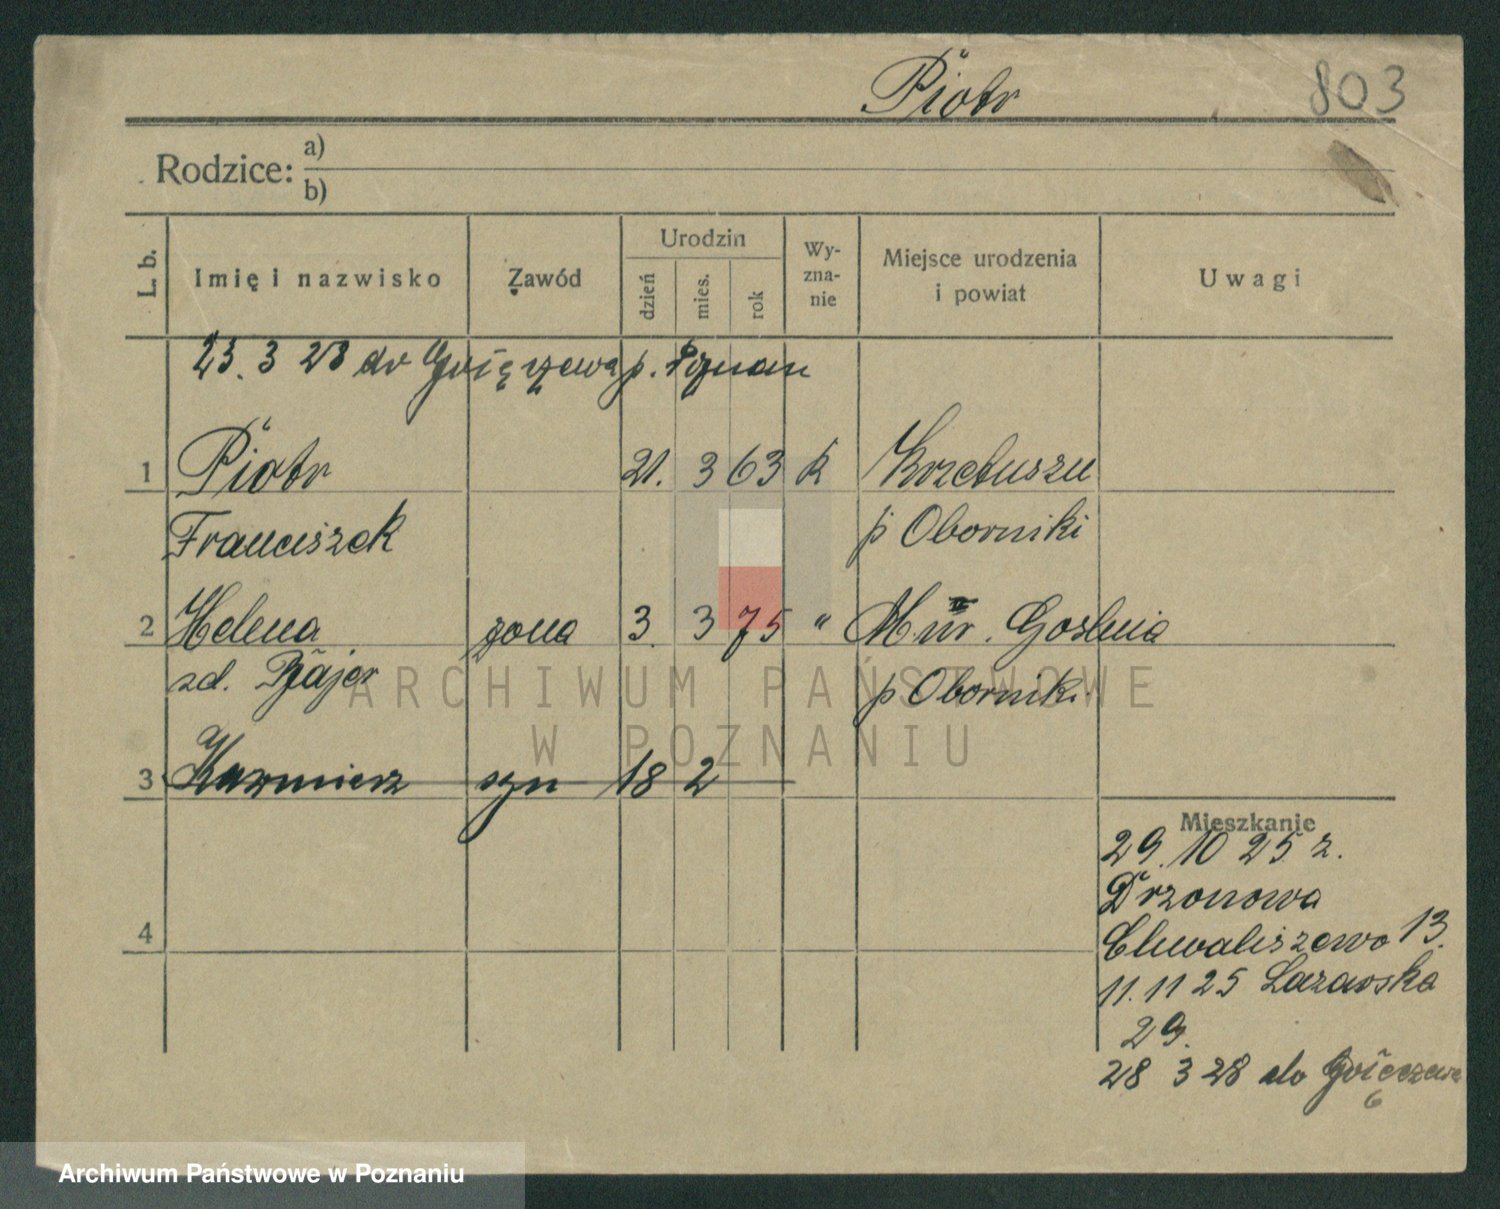 Piotr 803
Rodzice: a)
b)
L. b. Imię i nazwisko Zawód Urodzin dzień mies. rok Wy-zna-nie Miejsce urodzenia i powiat Uwagi
23. 3 28 do p. Poznan
1 Piotr 21. 3 63 k Krzetuszu
Franciszek p Oborniki
2 Helena zona 3. 3 75 " Mur. Goslnia
zd. Bajer p Oborniki
3 Kazmierz syn 18 2
Mieszkanie
29. 10 25 z.
Drzonowa
4
Chwaliszewo 13.
11. 11 25 Lazarska
29.
28 3 28 do
ARCHIWUM PAŃSTWOWE
W POZNANIU
Archiwum Państwowe w Poznaniu